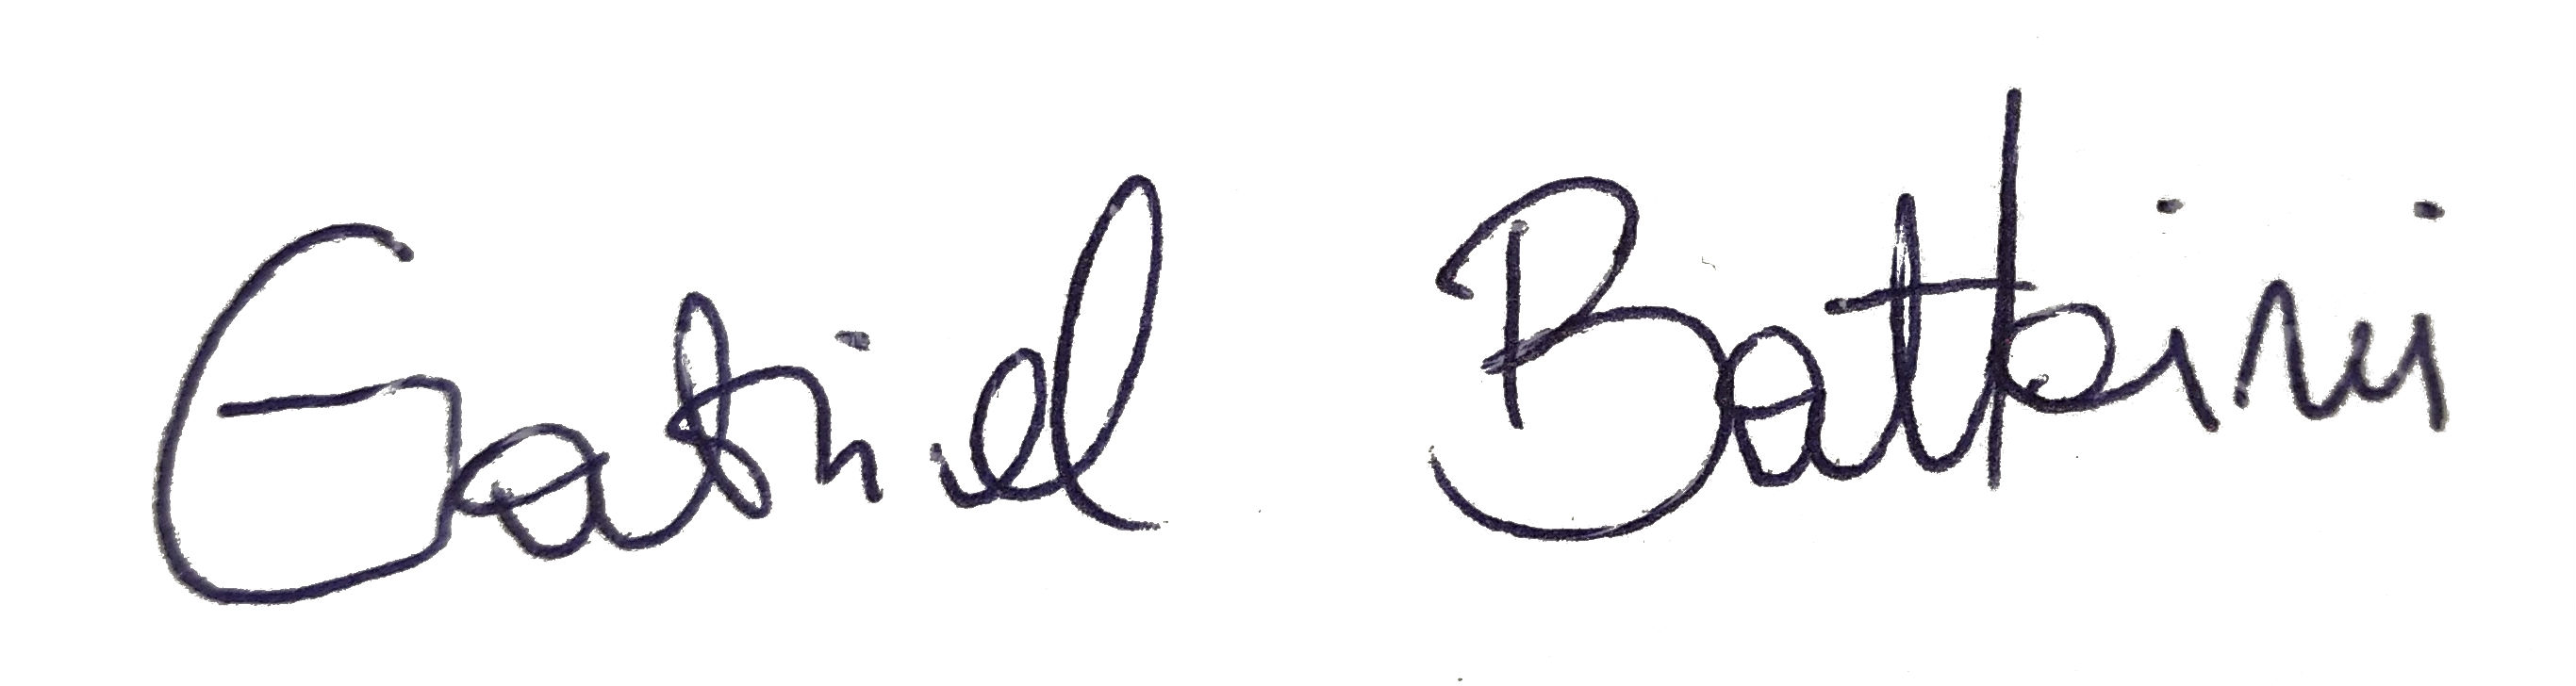 Gabriel Battini